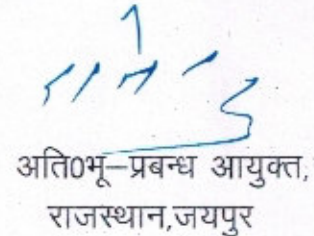 अति0भू–प्रबन्ध आयुक्त,
राजस्थान,जयपुर